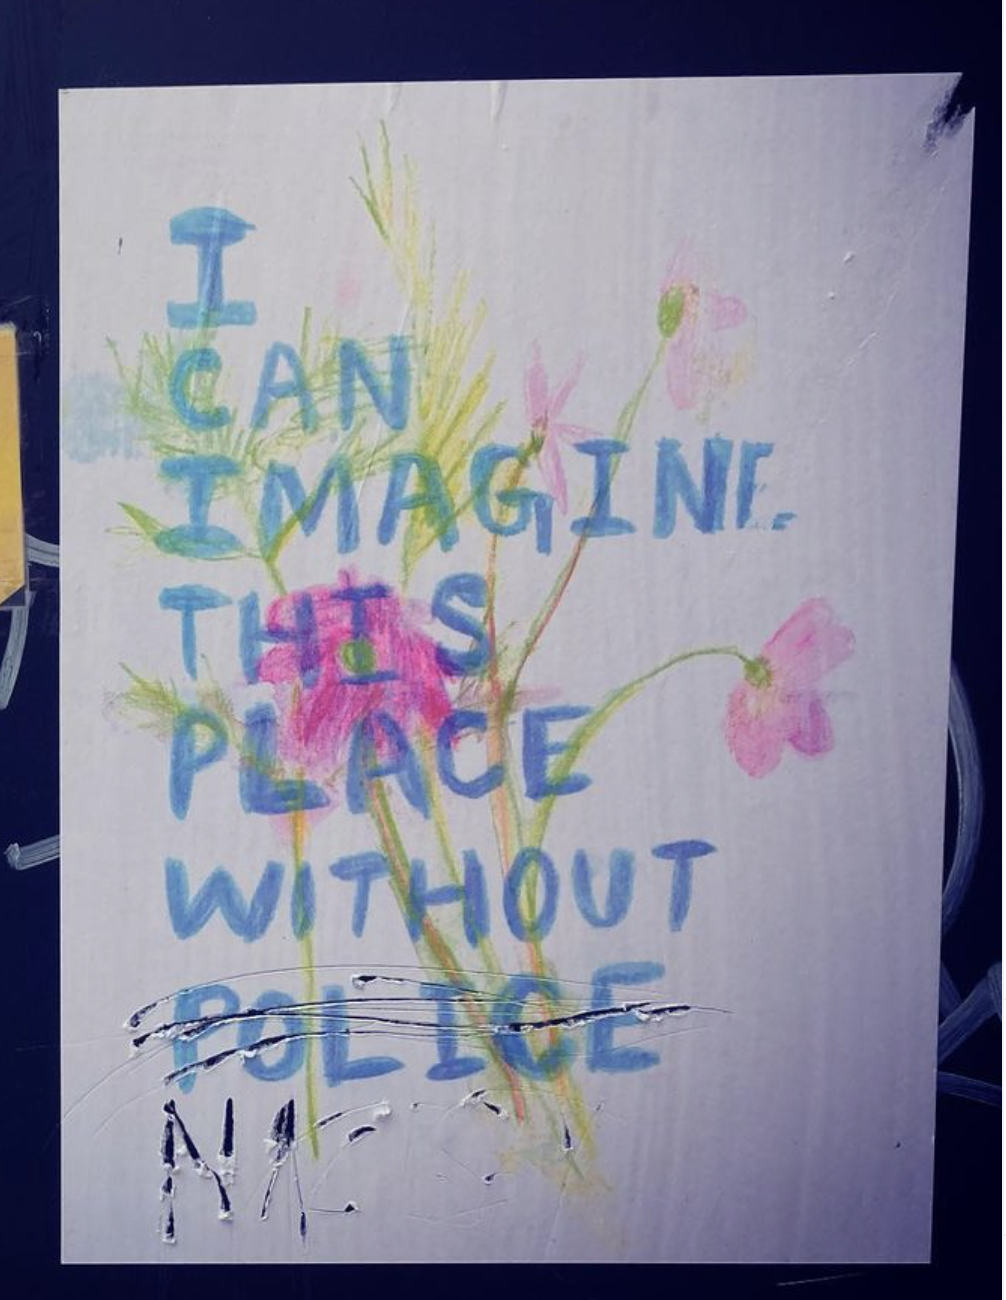 I
CAN
IMAGINE
THIS
PLACE
WITHOUT
POLICE